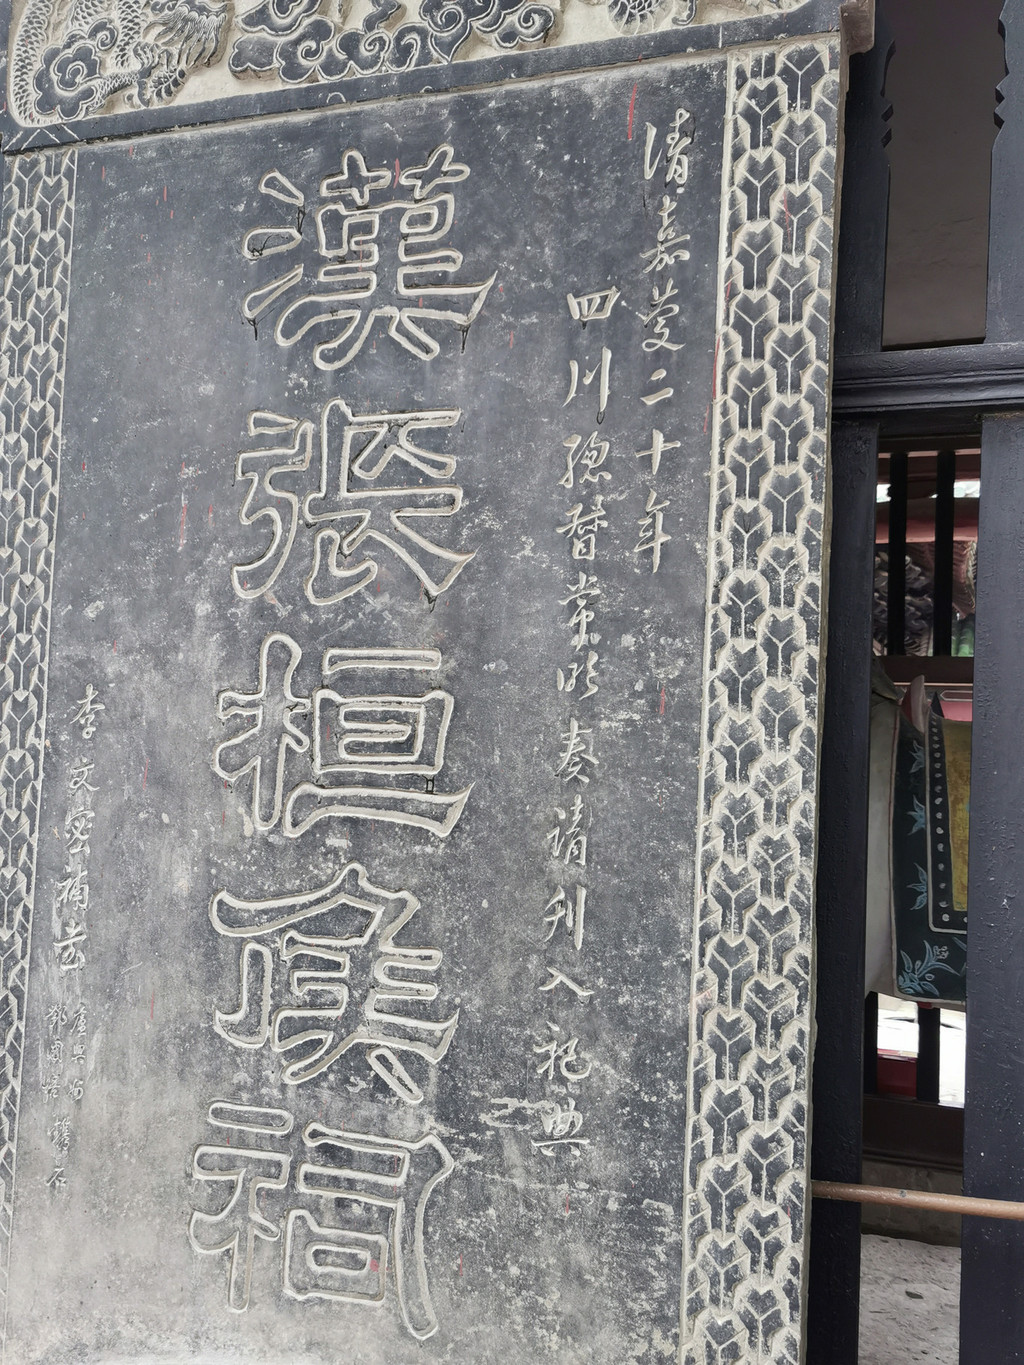 清嘉慶二十年
四川總督常明奏請列入祀典
漢張桓侯祠
李文密補書
國培
石